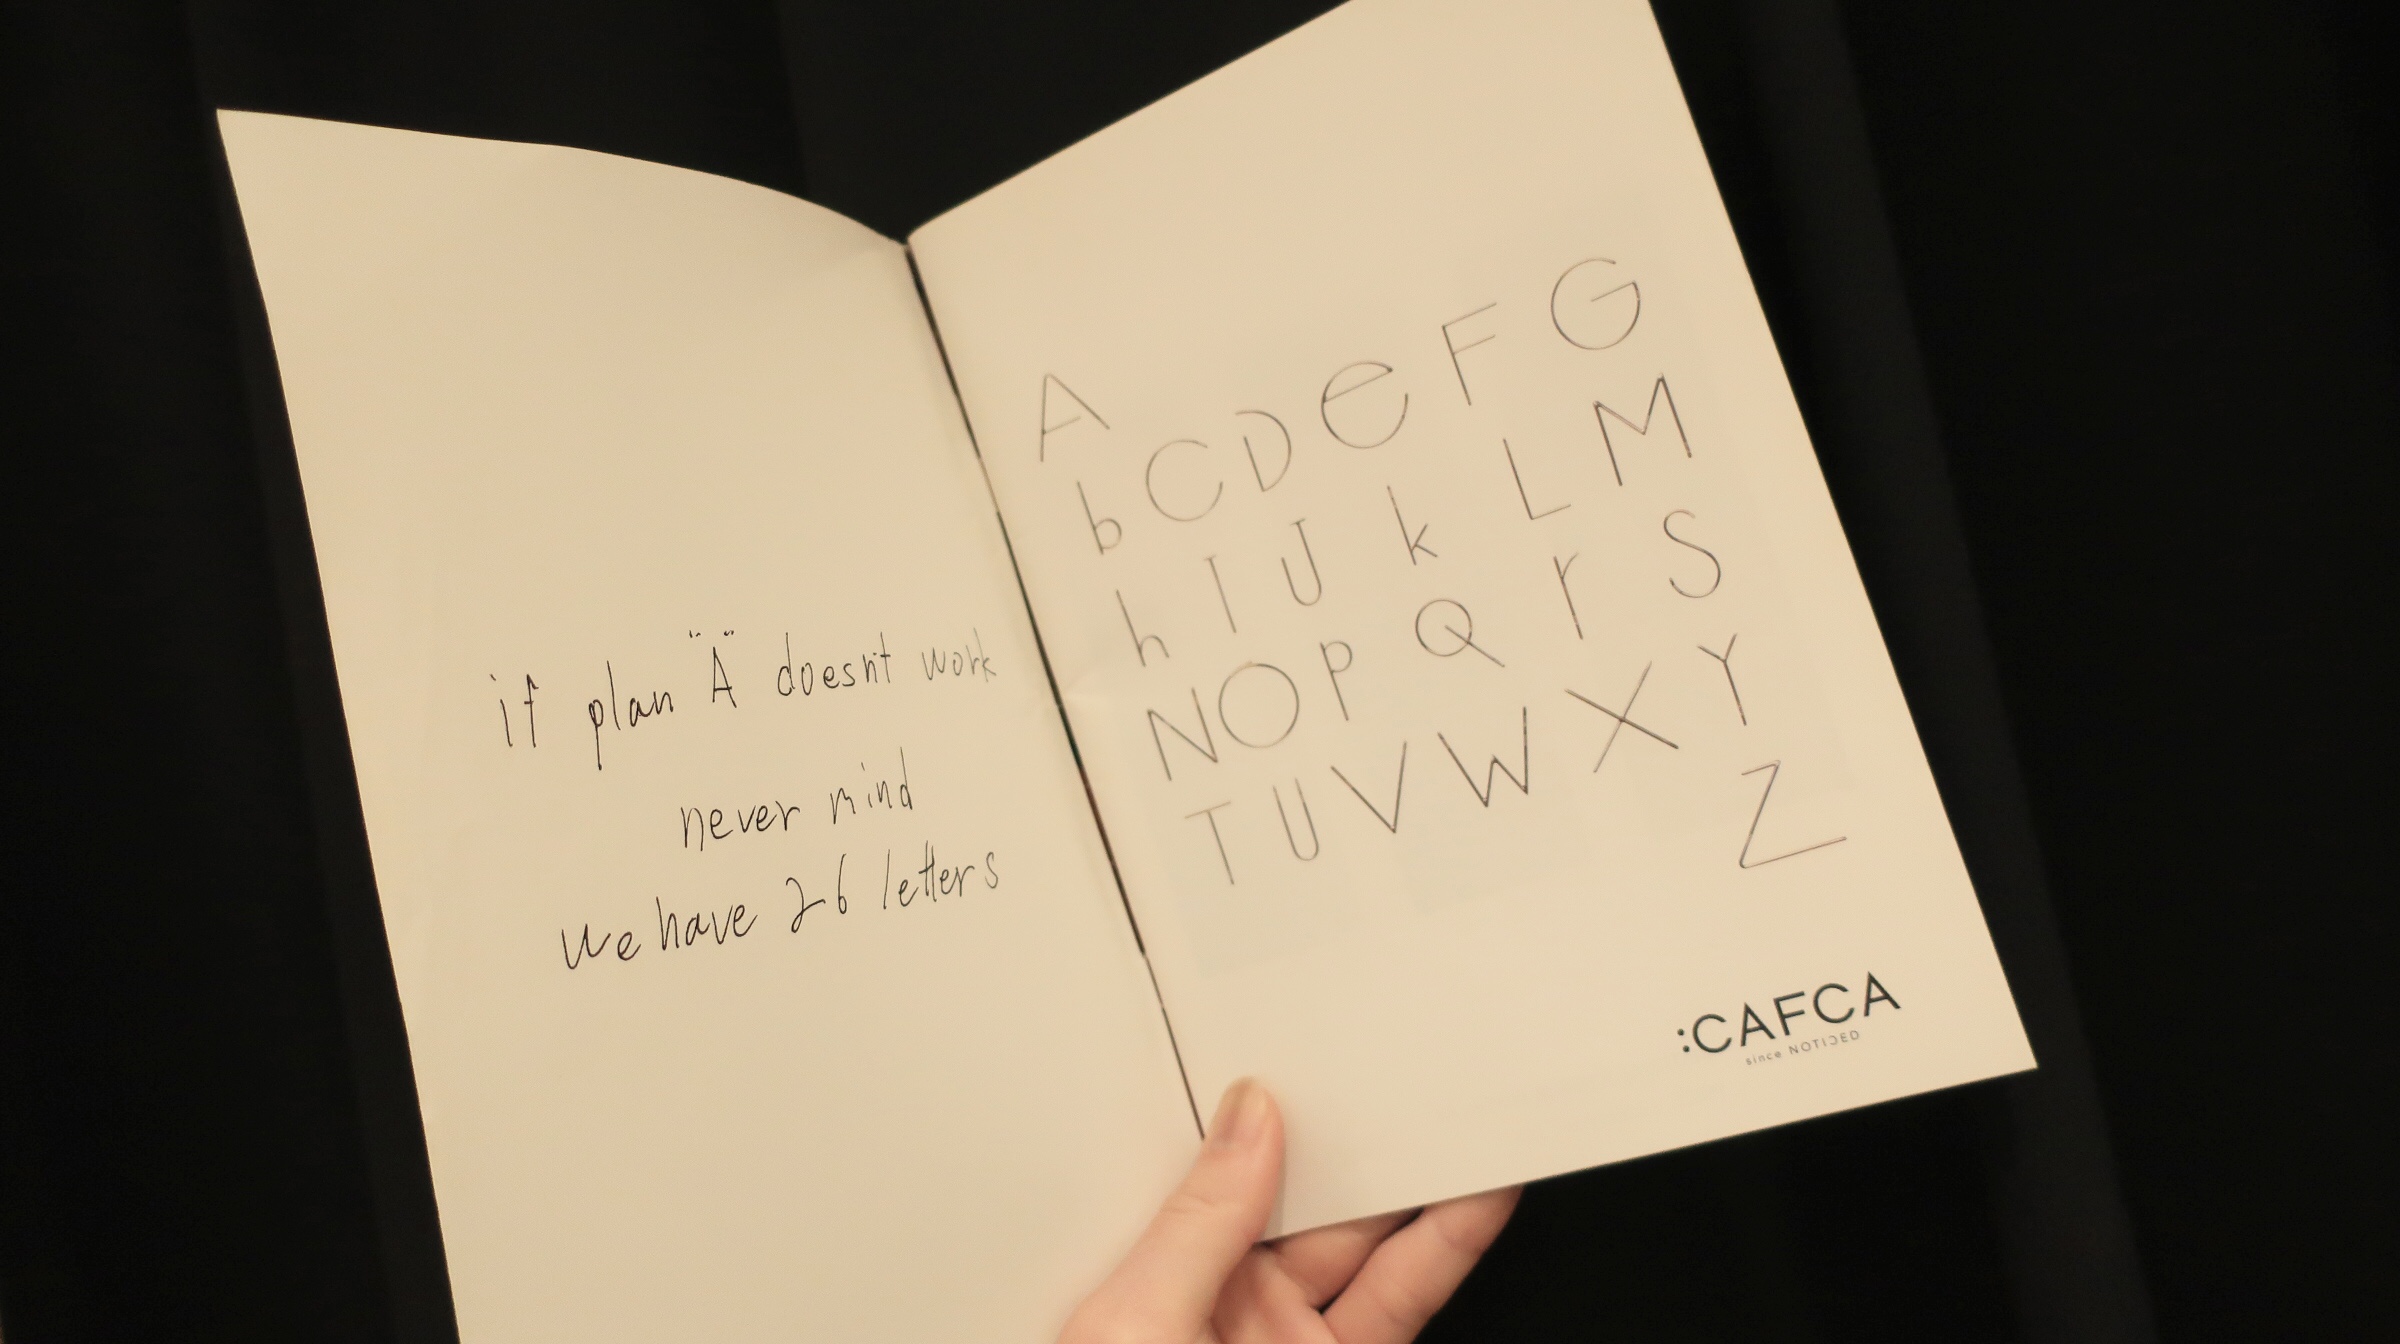 if plan "A" doesn't work
never mind
we have 26 letters
A b C D e F G
h I J k L M
N O P Q r S
T U V W X Y Z
:CAFCA
since NOTICED